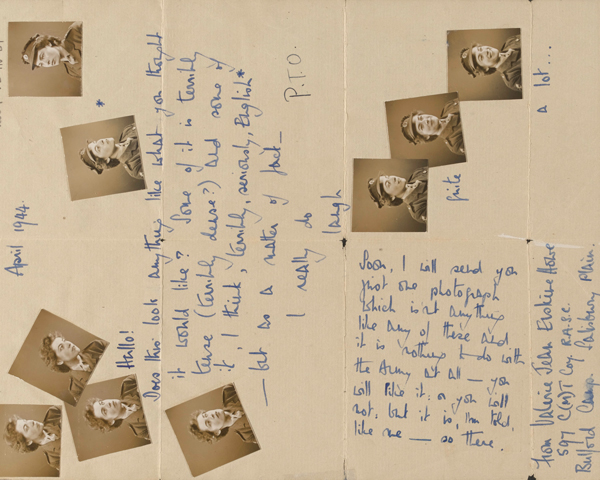 April 1944.
*
Hullo!
Does this look anything like what you thought
it would like? Some of it is terribly
tense (terribly dense?) and some of
it, I think, terribly, seriously, English*
— but as a matter of fact —
P.T.O.
I really do
laugh
quite
a lot...
Soon, I will send you
just one photograph
which isn't anything
like any of these and
it is nothing to do with
the Army at all — you
will like it or you will
not, but it is, I'm told,
like me — so there.
from Valerie Jean Erskine Howe
597 C(M)T Coy. R.A.S.C.
Bulford Camp. Salisbury Plain.